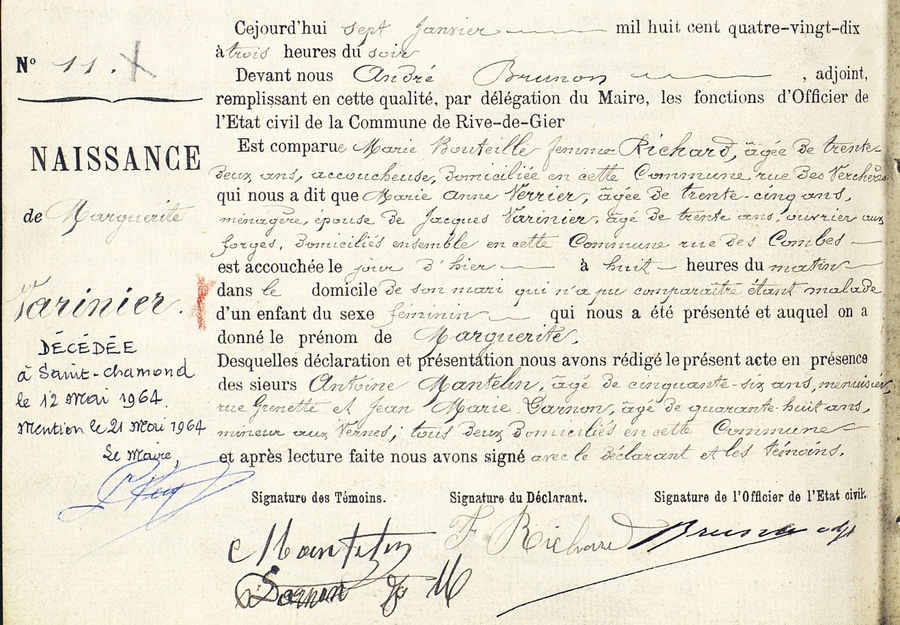 N° 11.
NAISSANCE
de Marguerite
Varinier.
DÉCÉDÉE
à Saint-chamond
le 12 Mai 1964
Mention le 21 Mai 1964
Le Maire
Cejourd'hui sept Janvier mil huit cent quatre-vingt-dix
à trois heures du soir
Devant nous André Brunon , adjoint,
remplissant en cette qualité, par délégation du Maire, les fonctions d'Officier de
l'Etat civil de la Commune de Rive-de-Gier
Est comparue Marie Bouteille femme Richard, âgée de trente-
deux ans, accoucheuse, domiciliée en cette Commune rue des Verchères
qui nous a dit que Marie Anne Verrier, âgée de trente-cinq ans,
ménagère, épouse de Jacques Varinier, âgé de trente ans, ouvrier aux
forges, domiciliés ensemble en cette Commune rue des Combes
est accouchée le jour d'hier à huit heures du matin
dans le domicile de son mari qui n'a pu comparaître étant malade
d'un enfant du sexe féminin qui nous a été présenté et auquel on a
donné le prénom de Marguerite,
Desquelles déclaration et présentation nous avons rédigé le présent acte en présence
des sieurs Antoine Mantelin, âgé de cinquante-six ans, menuisier,
rue Grenette et Jean Marie Garnon, âgé de quarante-huit ans,
mineur aux Vernes; tous deux domiciliés en cette Commune
et après lecture faite nous avons signé avec le déclarant et les témoins.
Signature des Témoins. Signature du Déclarant. Signature de l'Officier de l'Etat civil.
F Richard Brunon adj